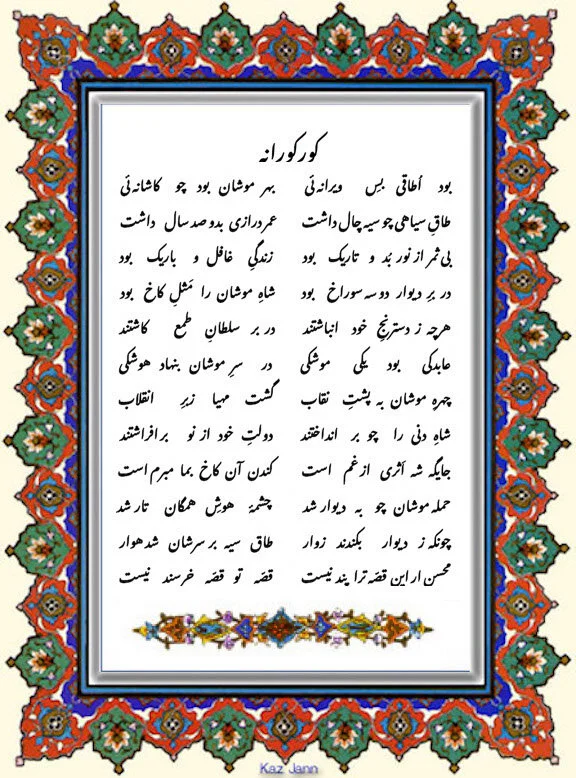 کورکورانه
بود اُطاقی بسِ ویرانه‌ئی بهر موشان بود چو کاشانه‌ئی
طاقِ سیاهی چو سیه چال داشت عمر درازی بدو صد سال داشت
بی ثمر از نور بُد و تاریک بود زندگیِ غافل و باریک بود
در برِ دیوار دو سه سوراخ بود شاهِ موشان را مَثلِ کاخ بود
هرچه ز دسترنجِ خود انباشتند در بر سلطانِ طمع کاشتند
عابدکی بود یکی موشکی در سرِ موشان بنهاد هوشکی
چهره موشان به پشتِ نقاب گشت مهیا زیرِ انقلاب
شاهِ دنی را چو بر انداختند دولتِ خود از نو برافراشتند
جایگه شه اَثری از غم است کندن آن کاخ بما مبرم است
حمله موشان چو به دیوار شد چشمهٔ هوشِ همگان تار شد
چونکه ز دیوار بکندند زوار طاق سیه بر سرشان شد هوار
محسن ار این قصّه ترا پند نیست قصّه تو قصّه خرسند نیست
Kaz Jann